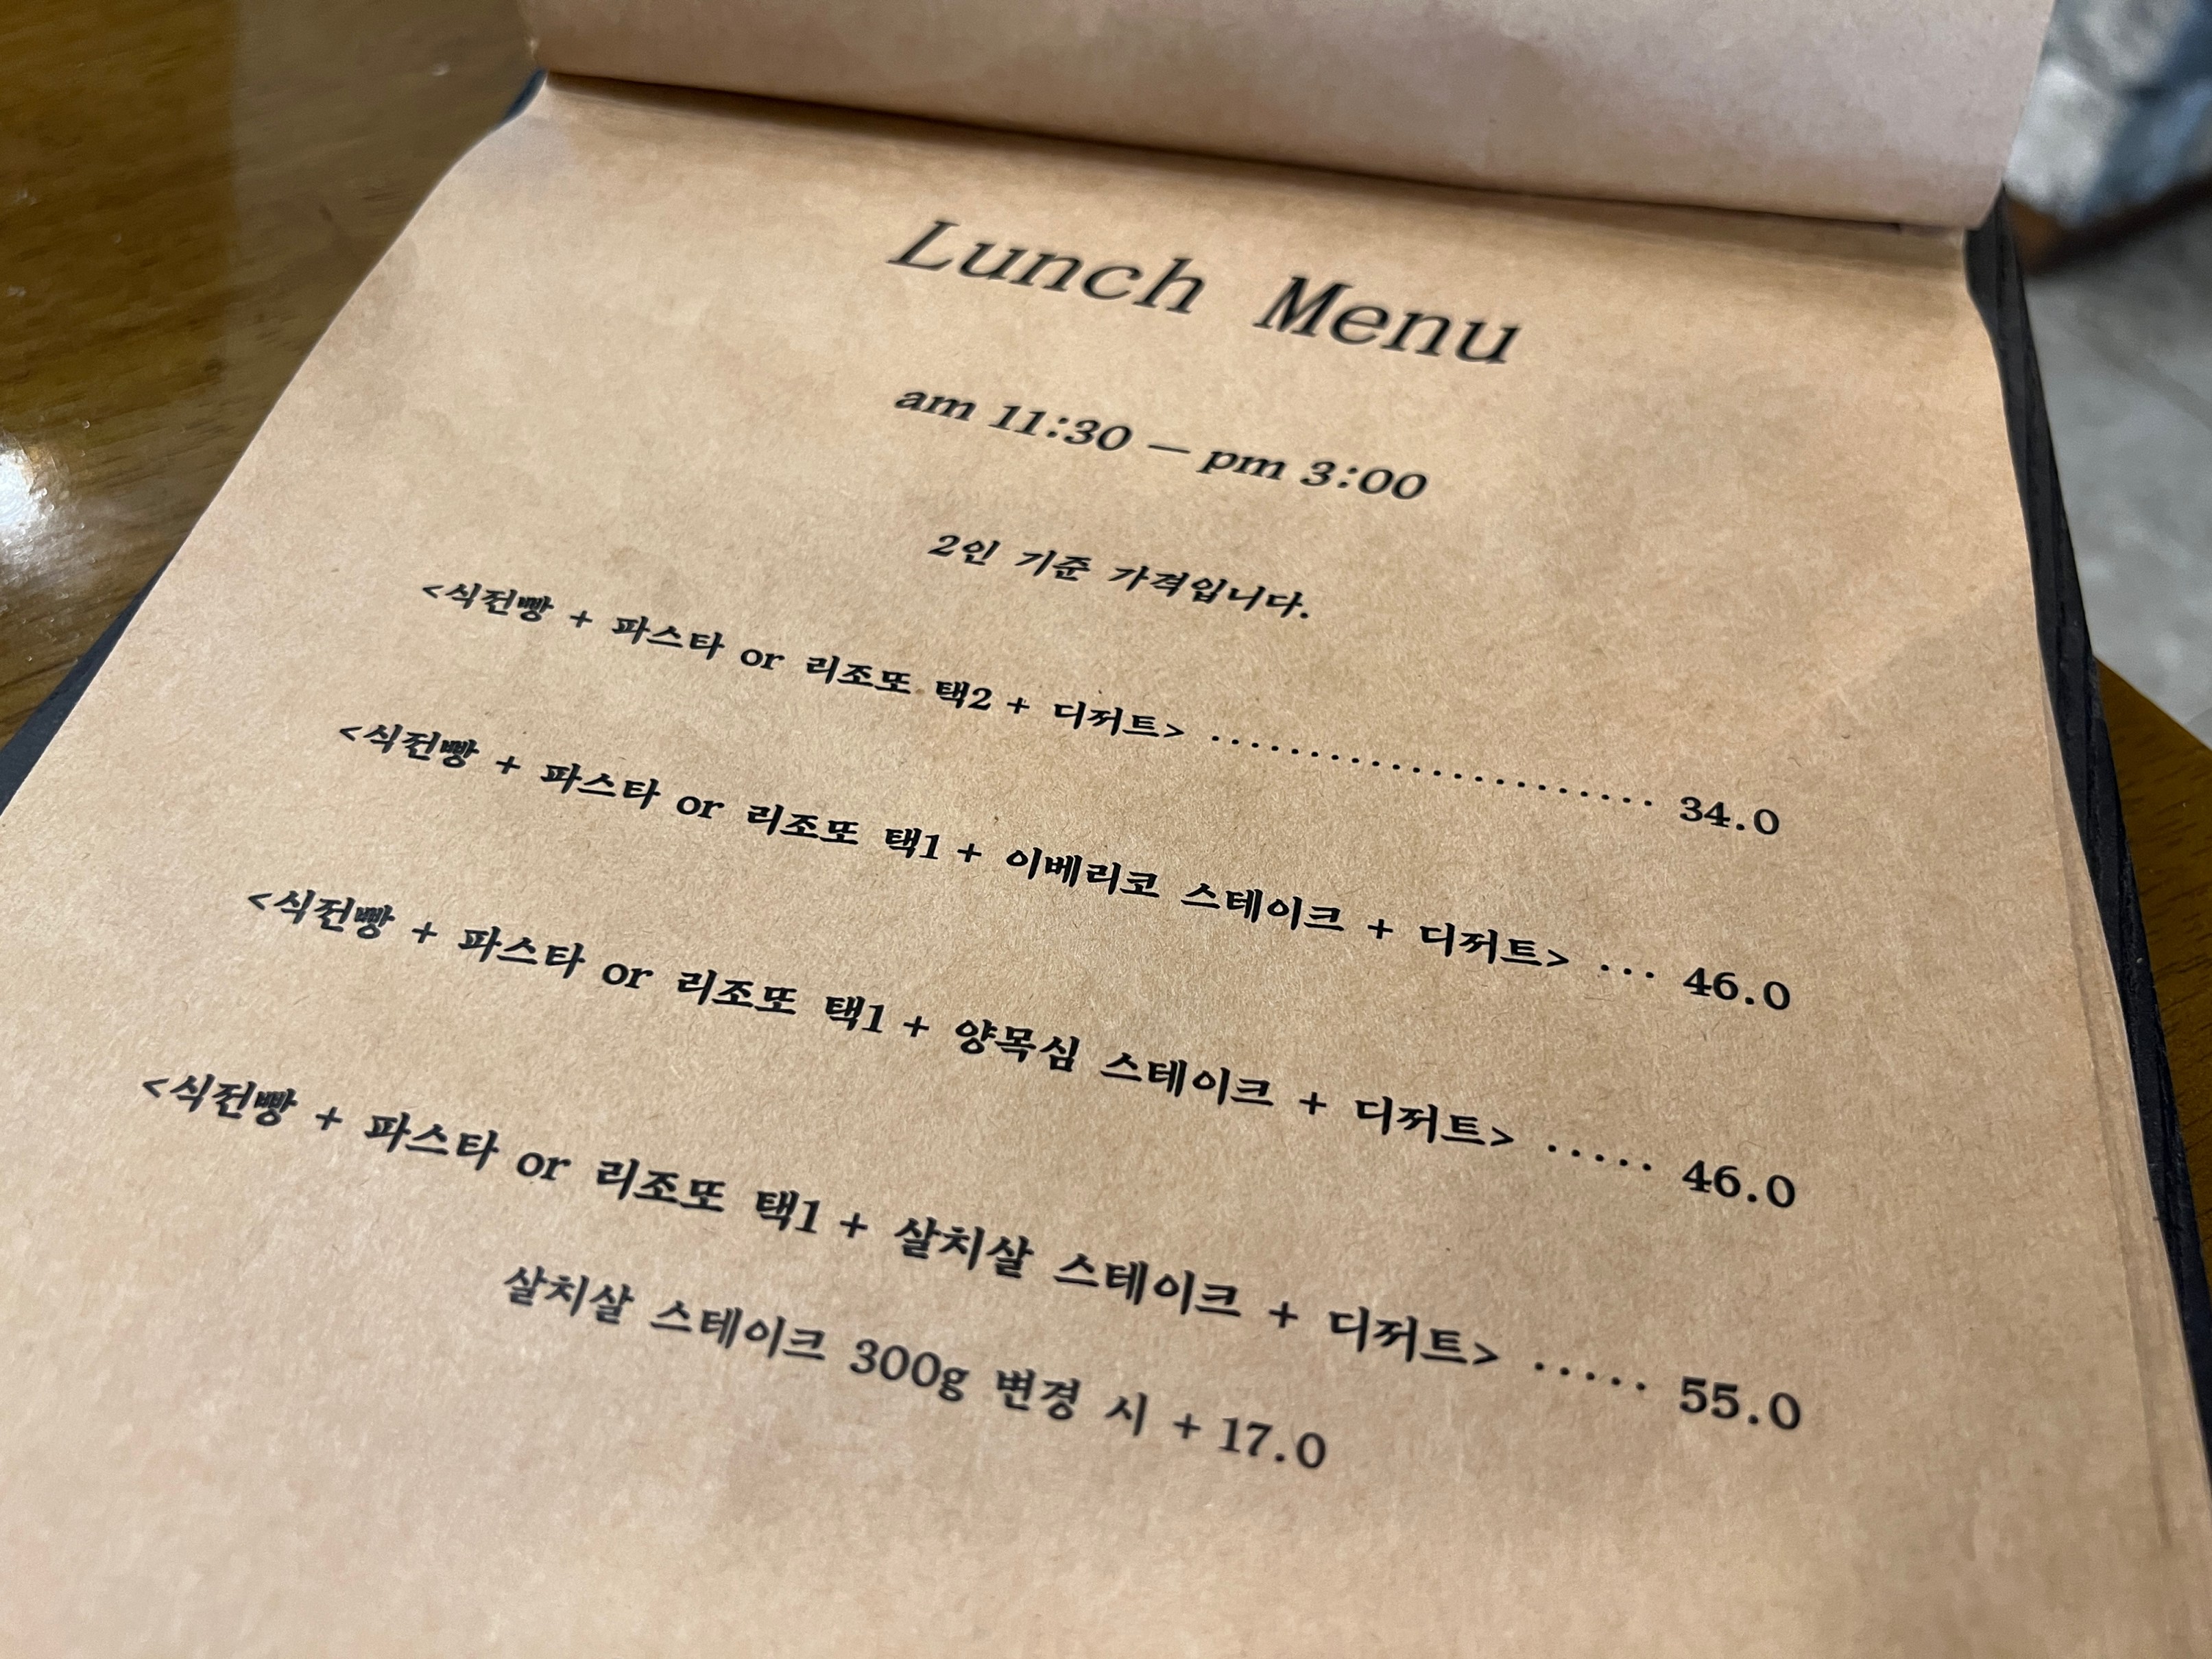 Lunch Menu
am 11:30 — pm 3:00
2인 기준 가격입니다.
<식전빵 + 파스타 or 리조또 택2 + 디저트> ...................... 34.0
<식전빵 + 파스타 or 리조또 택1 + 이베리코 스테이크 + 디저트> ... 46.0
<식전빵 + 파스타 or 리조또 택1 + 양목심 스테이크 + 디저트> ..... 46.0
<식전빵 + 파스타 or 리조또 택1 + 살치살 스테이크 + 디저트> ..... 55.0
살치살 스테이크 300g 변경 시 + 17.0